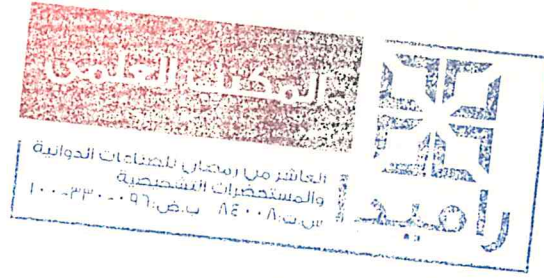 المكتب العلمى
راميدا
العاشر من رمضان للصناعات الدوائية
والمستحضرات التشخيصية
س.ت:٨٤٠٠٨ ب.ض:٠٩٦-٣٣٠-١٠٠